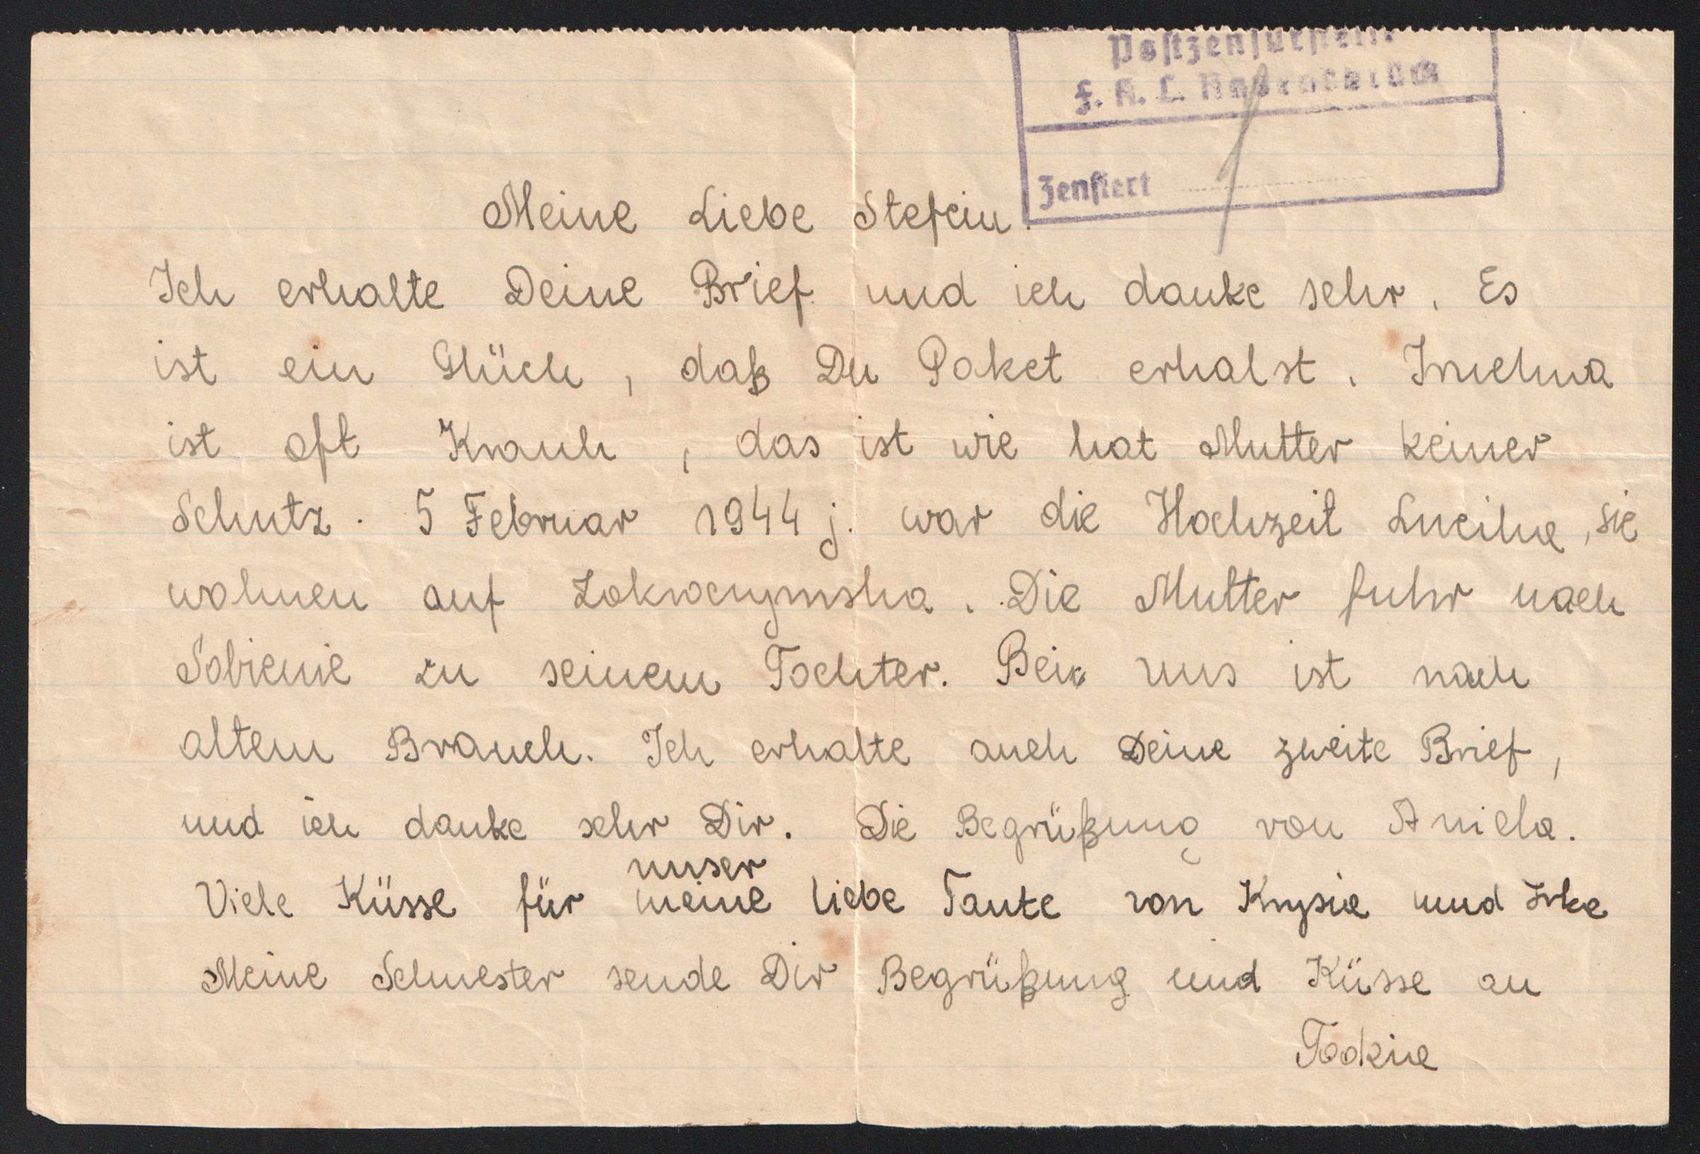 Postzensurstelle
F. K. L. Ravensbrück
Zensiert
Meine Liebe Stefcin.
Ich erhalte Deine Brief und ich danke sehr. Es
ist ein Glück, daß Du Paket erhalst.
ist oft Krank, das ist wie hat Mutter keiner
Schutz. 5 Februar 1944 j. war die Hochzeit Lucihe, sie
wohnen auf. Die Mutter fuhr nach
Sobienie zu seinem Tochter. Bei uns ist nach
altem Brauch. Ich erhalte auch Deine zweite Brief,
und ich danke sehr Dir. Die Begrüßung von Aniela.
unser
Viele Küsse für meine liebe Tante von Krysia und Irke
Meine Schwester sende Dir Begrüßung und Küsse an